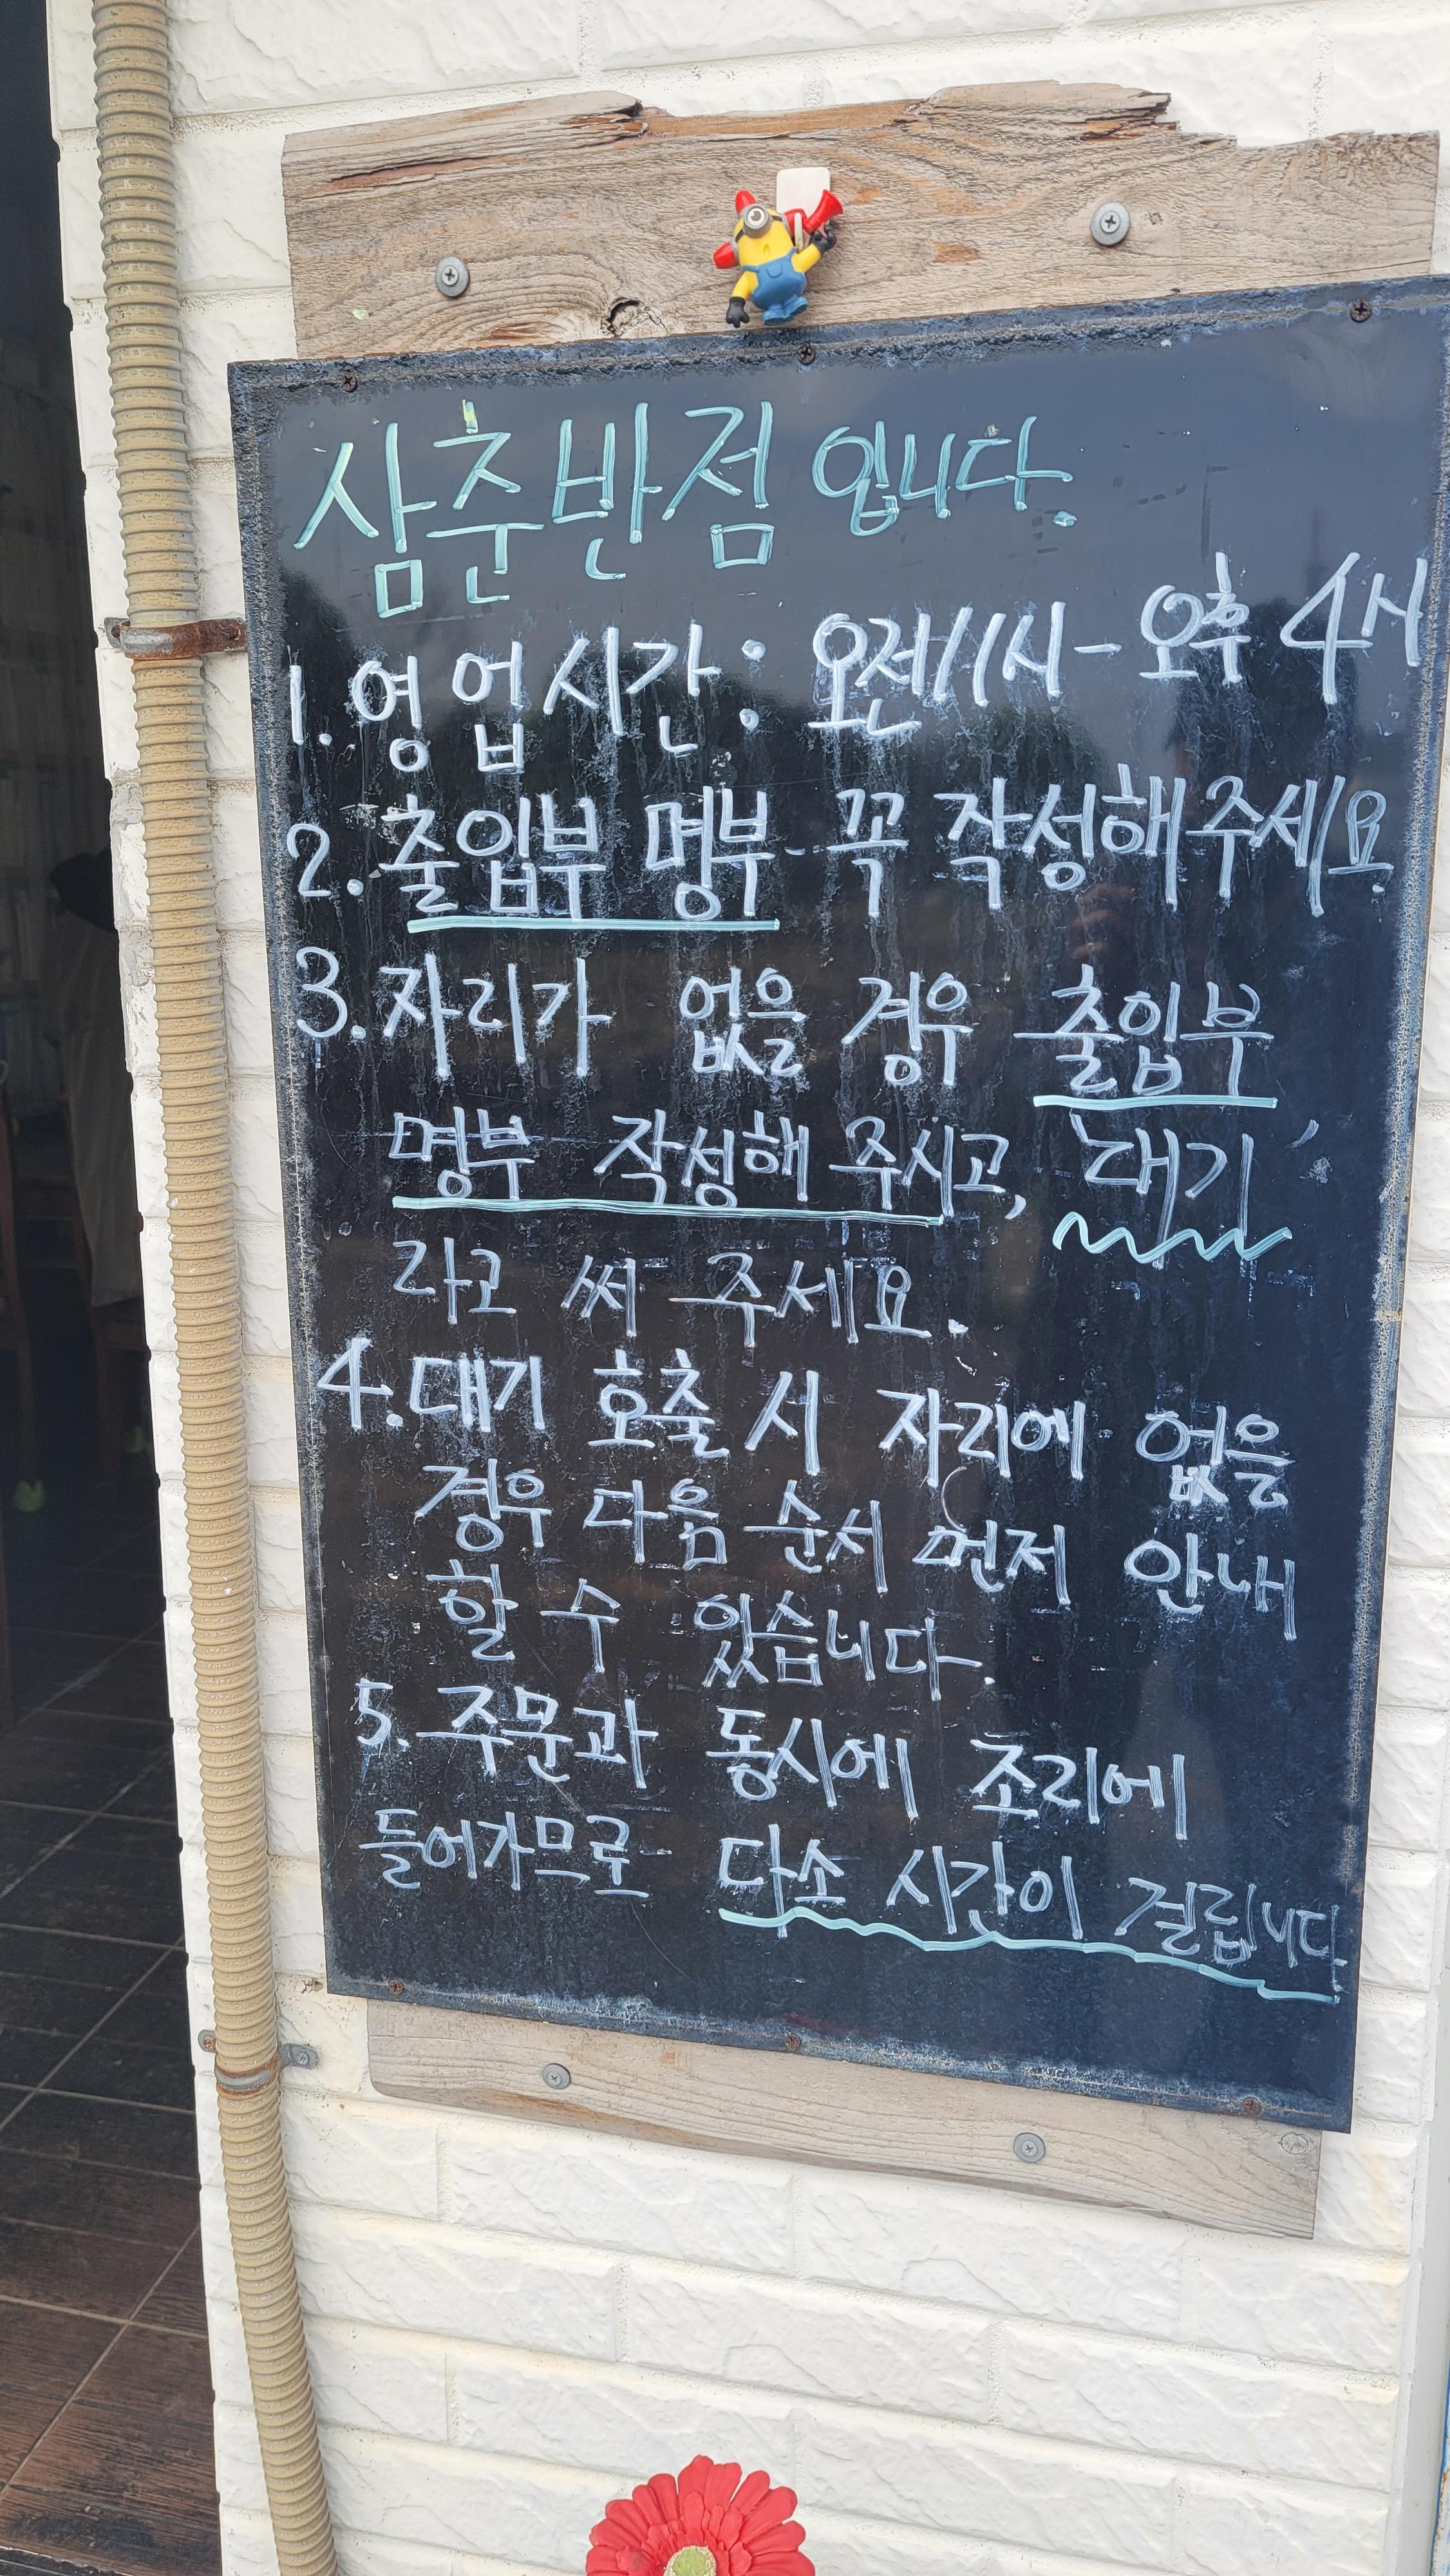 삼춘반점 입니다.
1. 영업시간: 오전11시- 오후 4시
2. 출입부 명부 꼭 작성해주세요
3. 자리가 없을 경우 출입부
명부 작성해 주시고, '대기'
라고 써 주세요.
4. 대기 호출 시 자리에 없을
경우 다음 순서 먼저 안내
할 수 있습니다.
5. 주문과 동시에 조리에
들어가므로 다소 시간이 걸립니다.